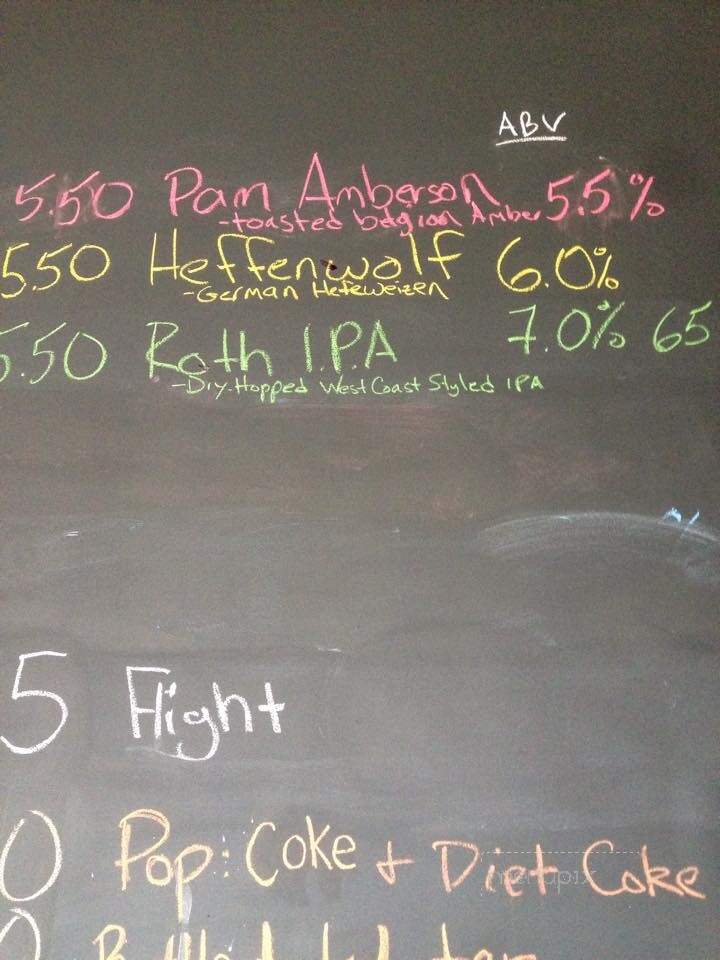 ABV
5.50 Pam Amberson 5.5%
-toasted belgian Amber
5.50 Heffenwolf 6.0%
-German Hefeweizen
5.50 Roth I.P.A 7.0% 65
-Dry-Hopped West Coast Styled IPA
5 Flight
0 Pop: Coke + Diet Coke
menupix